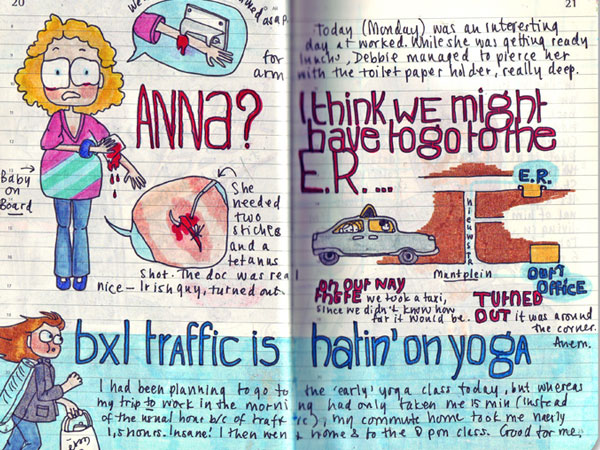 20
for
arm
ANNA?
Baby
on
Board
She
needed
two
stiches
and a
tetanus
shot. The doc was real
nice – Irish guy, turned out.
21
Today (Monday) was an interesting
day at worked. While she was getting ready
lunch, Debbie managed to pierce her
with the toilet paper holder, really deep.
I think we might
have to go to the
E.R. ...
E.R.
Nieuwstr
Muntplein
OUR
OFFICE
ON OUR WAY
THERE we took a taxi,
since we didn't know how
far it would be.
TURNED
OUT it was around
the corner.
Ahem.
bxl traffic is hatin' on yoga
I had been planning to go to the 'early' yoga class today, but whereas
my trip to work in the morning had only taken me 15 min (instead
of the usual hour b/c of traffic), my commute home took me nearly
1,5 hours. Insane! I then went home & to the 8 pm class. Good for me.